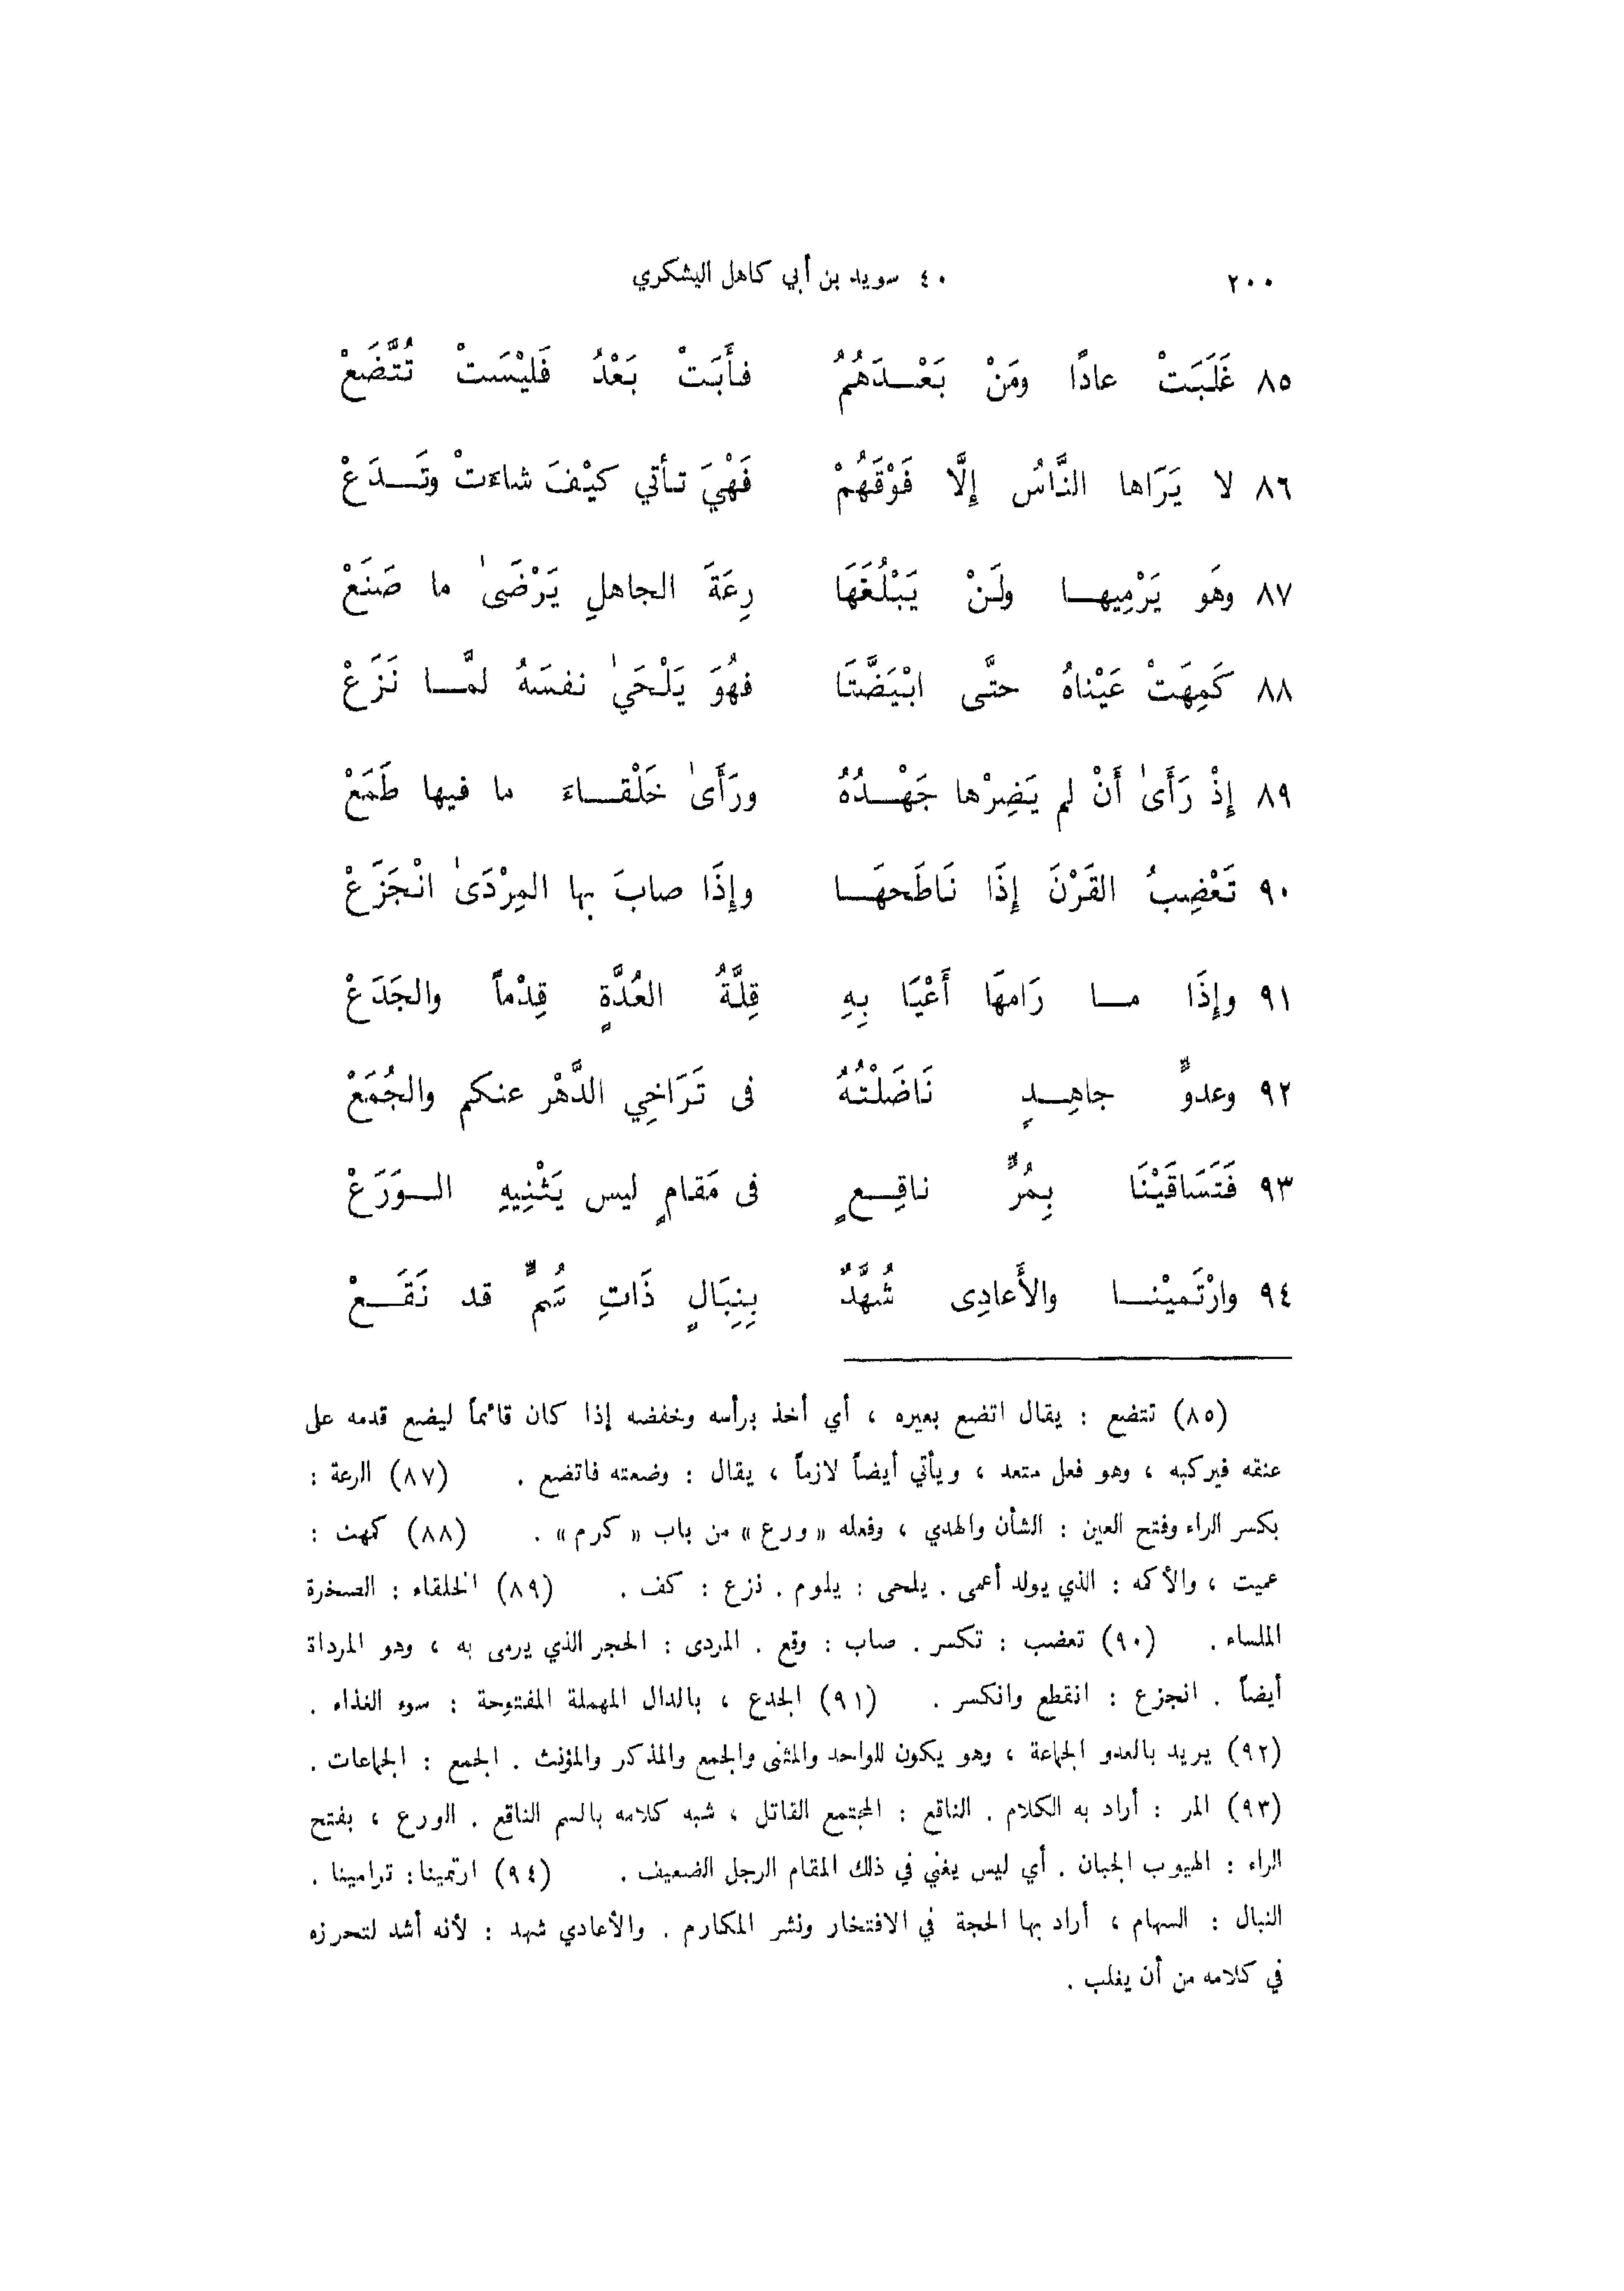 ٢٠٠ ٤٠ سويد بن أبي كاهل اليشكري
٨٥ غَلَبَتْ عادًا ومَنْ بَعْـــدَهُمُ فأَبَتْ بَعْدُ فَلَيْسَتْ تُتَّضَعْ
٨٦ لا يَرَاها النَّاسُ إِلَّا فَوْقَهُمْ فَهْيَ تأتي كيْفَ شاءتْ وتَـــدَعْ
٨٧ وهَو يَرْمِيهـــا ولَنْ يَبْلُغَهَا رِعَةَ الجاهلِ يَرْضَىٰ ما صَنَعْ
٨٨ كَمِهَتْ عَيْناهُ حتَّى ابْيَضَّتَا فهُوَ يَلْحَىٰ نفسَهُ لمَّـــا نَزَعْ
٨٩ إِذْ رَأَىٰ أَنْ لم يَضِرْها جَهْـــدُهُ ورَأَىٰ خَلْقـــاءَ ما فيها طَمَعْ
٩٠ تَعْضِبُ القَرْنَ إِذَا نَاطَحهَـــا وإِذَا صابَ بها المِرْدَىٰ انْجَزَعْ
٩١ وإِذَا مـــا رَامهَا أَعْيَا بِهِ قِلَّةُ العُدَّةِ قِدْماً والجَدَعْ
٩٢ وعدوٌّ جاهِـــدٍ نَاضَلْتُهُ فى تَرَاخِي الدَّهْر عنكم والجُمَعْ
٩٣ فَتَسَاقَيْنَا بِمُرٌّ ناقِـــعٍ فى مَقامٍ ليس يَثْنِيهِ الـــوَرَعْ
٩٤ وارْتَميْنـــا والأَعادِى شُهَّدٌ بِنِبَالٍ ذَاتِ سُمٌّ قد نَقَـــعْ
(٨٥) تتضع : يقال اتضع بعيره ، أي أخذ برأسه وخفضه إذا كان قائماً ليضع قدمه على
عنقه فيركبه ، وهو فعل متعد ، ويأتي أيضاً لازماً ، يقال : وضعته فاتضع . (٨٧) الرعة :
بكسر الراء وفتح العين : الشأن والهدي ، وفعله « ورع » من باب « كرم » . (٨٨) كمهت :
عميت ، والأكمه : الذي يولد أعمى . يلحى : يلوم . نزع : كف . (٨٩) الخلقاء : الصخرة
الملساء . (٩٠) تعضب : تكسر . صاب : وقع . المردى : الحجر الذي يرمى به ، وهو المرداة
أيضاً . انجزع : انقطع وانكسر . (٩١) الجدع ، بالدال المهملة المفتوحة : سوء الغذاء .
(٩٢) يريد بالعدو الجماعة ، وهو يكون للواحد والمثنى والجمع والمذكر والمؤنث . الجمع : الجماعات .
(٩٣) المر : أراد به الكلام . الناقع : المجتمع القاتل ، شبه كلامه بالسم الناقع . الورع ، بفتح
الراء : الهيوب الجبان . أي ليس يغني في ذلك المقام الرجل الضعيف . (٩٤) ارتمينا : ترامينا .
النبال : السهام ، أراد بها الحجة في الافتخار ونشر المكارم . والأعادي شهد : لأنه أشد لتحرزه
في كلامه من أن يغلب .